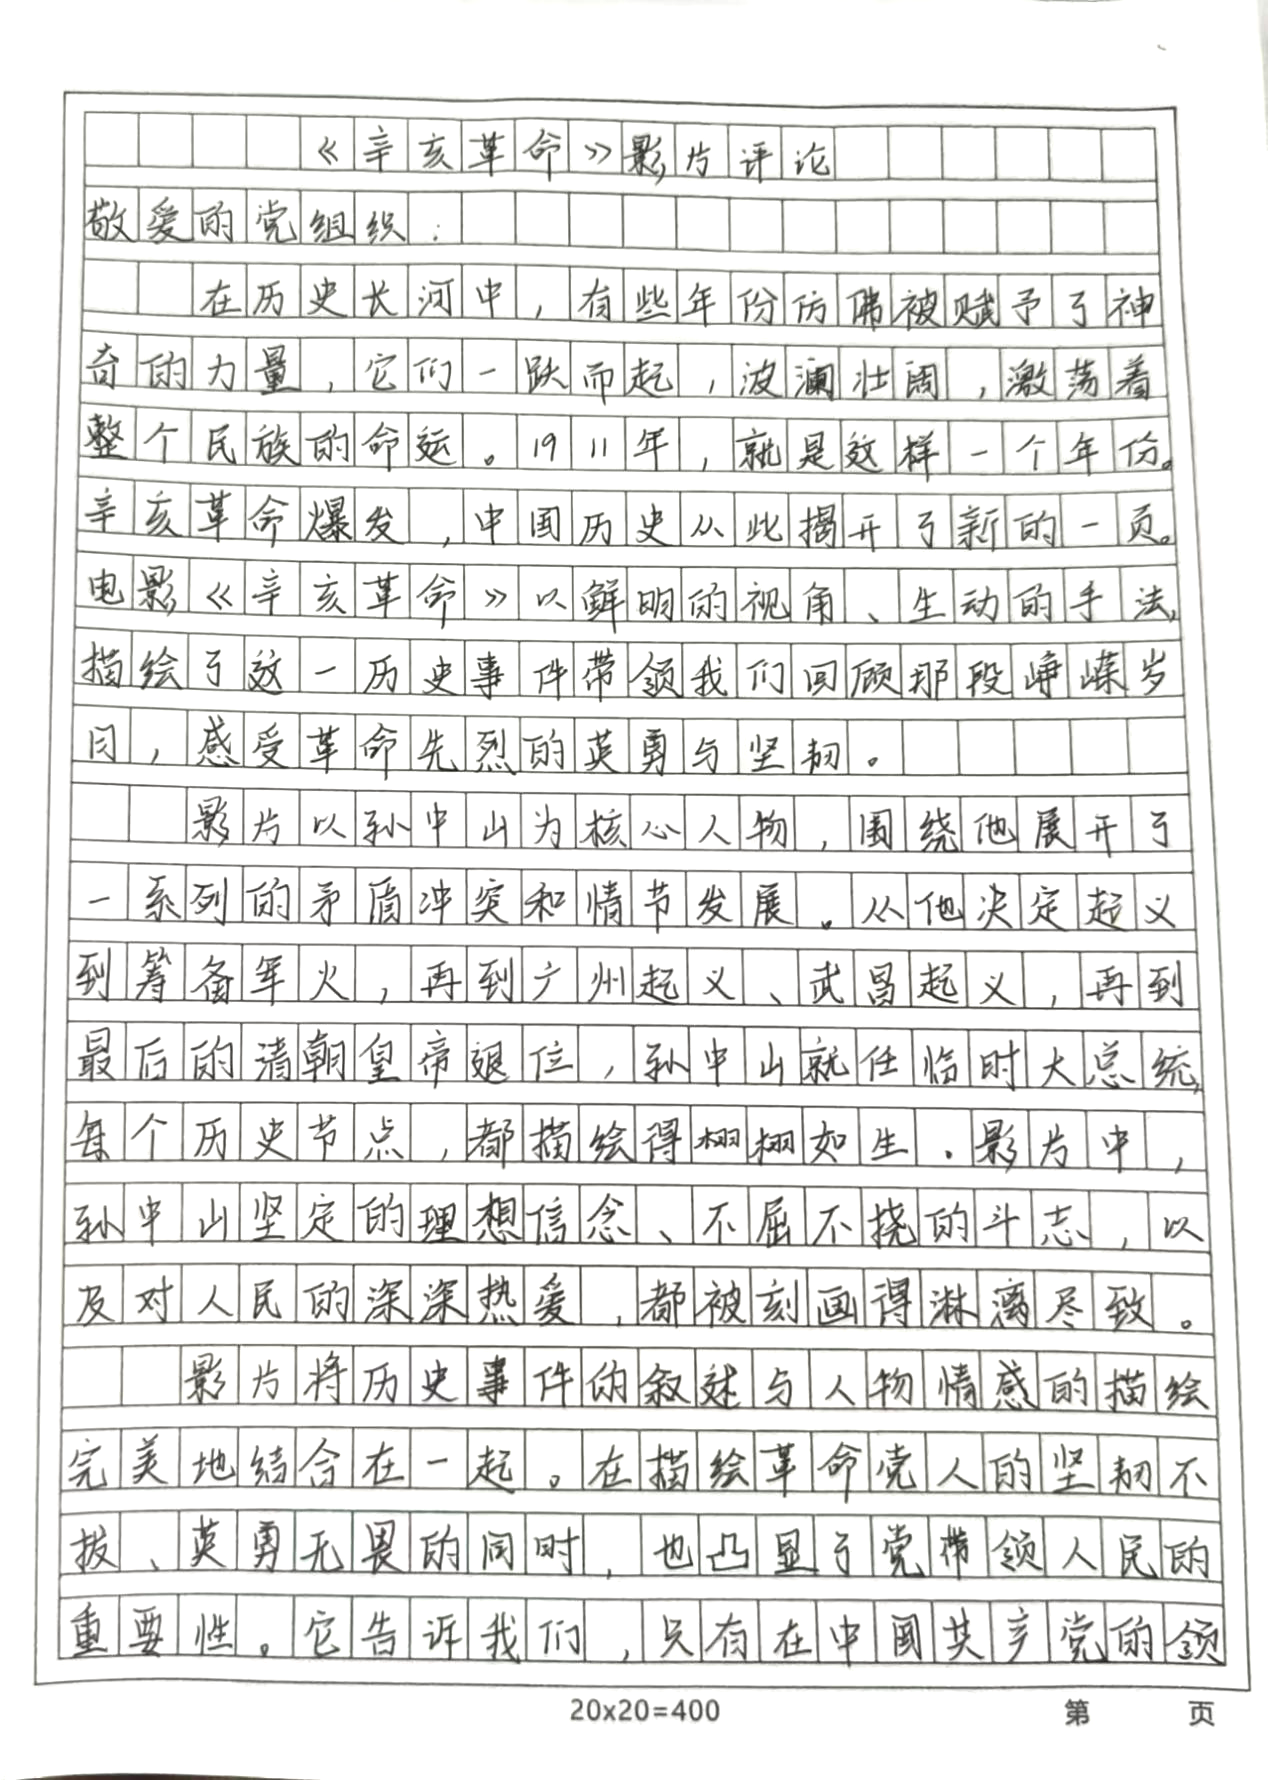 《辛亥革命》影片评论
敬爱的党组织:
在历史长河中,有些年份仿佛被赋予了神
奇的力量,它们一跃而起,波澜壮阔,激荡着
整个民族的命运。1911年,就是这样一个年份。
辛亥革命爆发,中国历史从此揭开了新的一页。
电影《辛亥革命》以鲜明的视角、生动的手法,
描绘了这一历史事件带领我们回顾那段峥嵘岁
月,感受革命先烈的英勇与坚韧。
影片以孙中山为核心人物,围绕他展开了
一系列的矛盾冲突和情节发展。从他决定起义
到筹备军火,再到广州起义、武昌起义,再到
最后的清朝皇帝退位,孙中山就任临时大总统,
每个历史节点,都描绘得栩栩如生.影片中,
孙中山坚定的理想信念、不屈不挠的斗志,以
及对人民的深深热爱,都被刻画得淋漓尽致。
影片将历史事件的叙述与人物情感的描绘
完美地结合在一起。在描绘革命党人的坚韧不
拔、英勇无畏的同时,也凸显了党带领人民的
重要性。它告诉我们,只有在中国共产党的领
20x20=400
第 页